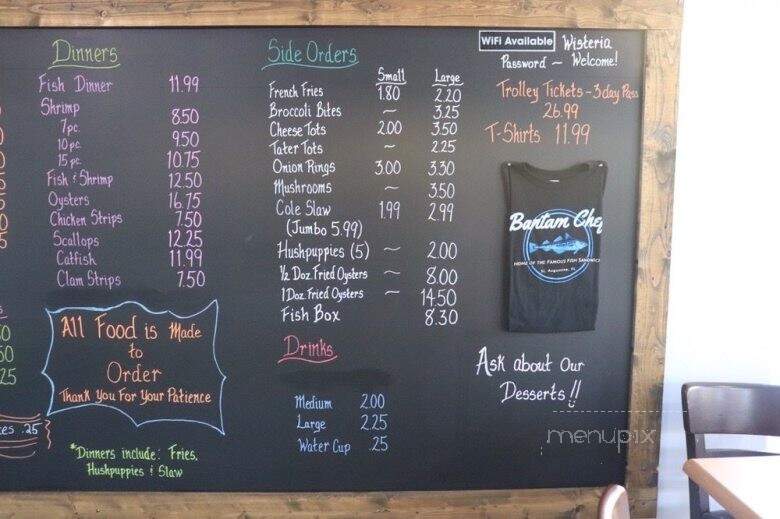 Dinners
Fish Dinner 11.99
Shrimp
7pc. 8.50
10pc. 9.50
15 pc. 10.75
Fish & Shrimp 12.50
Oysters 16.75
Chicken Strips 7.50
Scallops 12.25
Catfish 11.99
Clam Strips 7.50
All Food is Made
to
Order
Thank You For Your Patience
*Dinners include: Fries,
Hushpuppies & Slaw
.25
Side Orders
Small Large
French Fries 1.80 2.20
Broccoli Bites ~ 3.25
Cheese Tots 2.00 3.50
Tater Tots ~ 2.25
Onion Rings 3.00 3.30
Mushrooms ~ 3.50
Cole Slaw 1.99 2.99
(Jumbo 5.99)
Hushpuppies (5) ~ 2.00
1/2 Doz Fried Oysters ~ 8.00
1 Doz Fried Oysters ~ 14.50
Fish Box 8.30
Drinks
Medium 2.00
Large 2.25
Water Cup .25
WiFi Available Wisteria
Password ~ Welcome!
Trolley Tickets - 3 day Pass
26.99
T-Shirts 11.99
Bantam Chef
HOME OF THE FAMOUS FISH SANDWICH
St. Augustine, FL
Ask about Our
Desserts!!
menupix